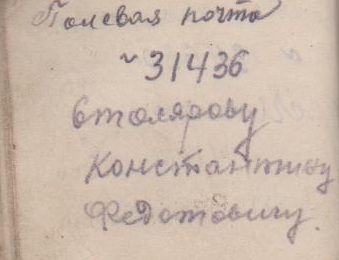 Полевая почта
~ 31436
Столярову
Константину
Федотовичу.